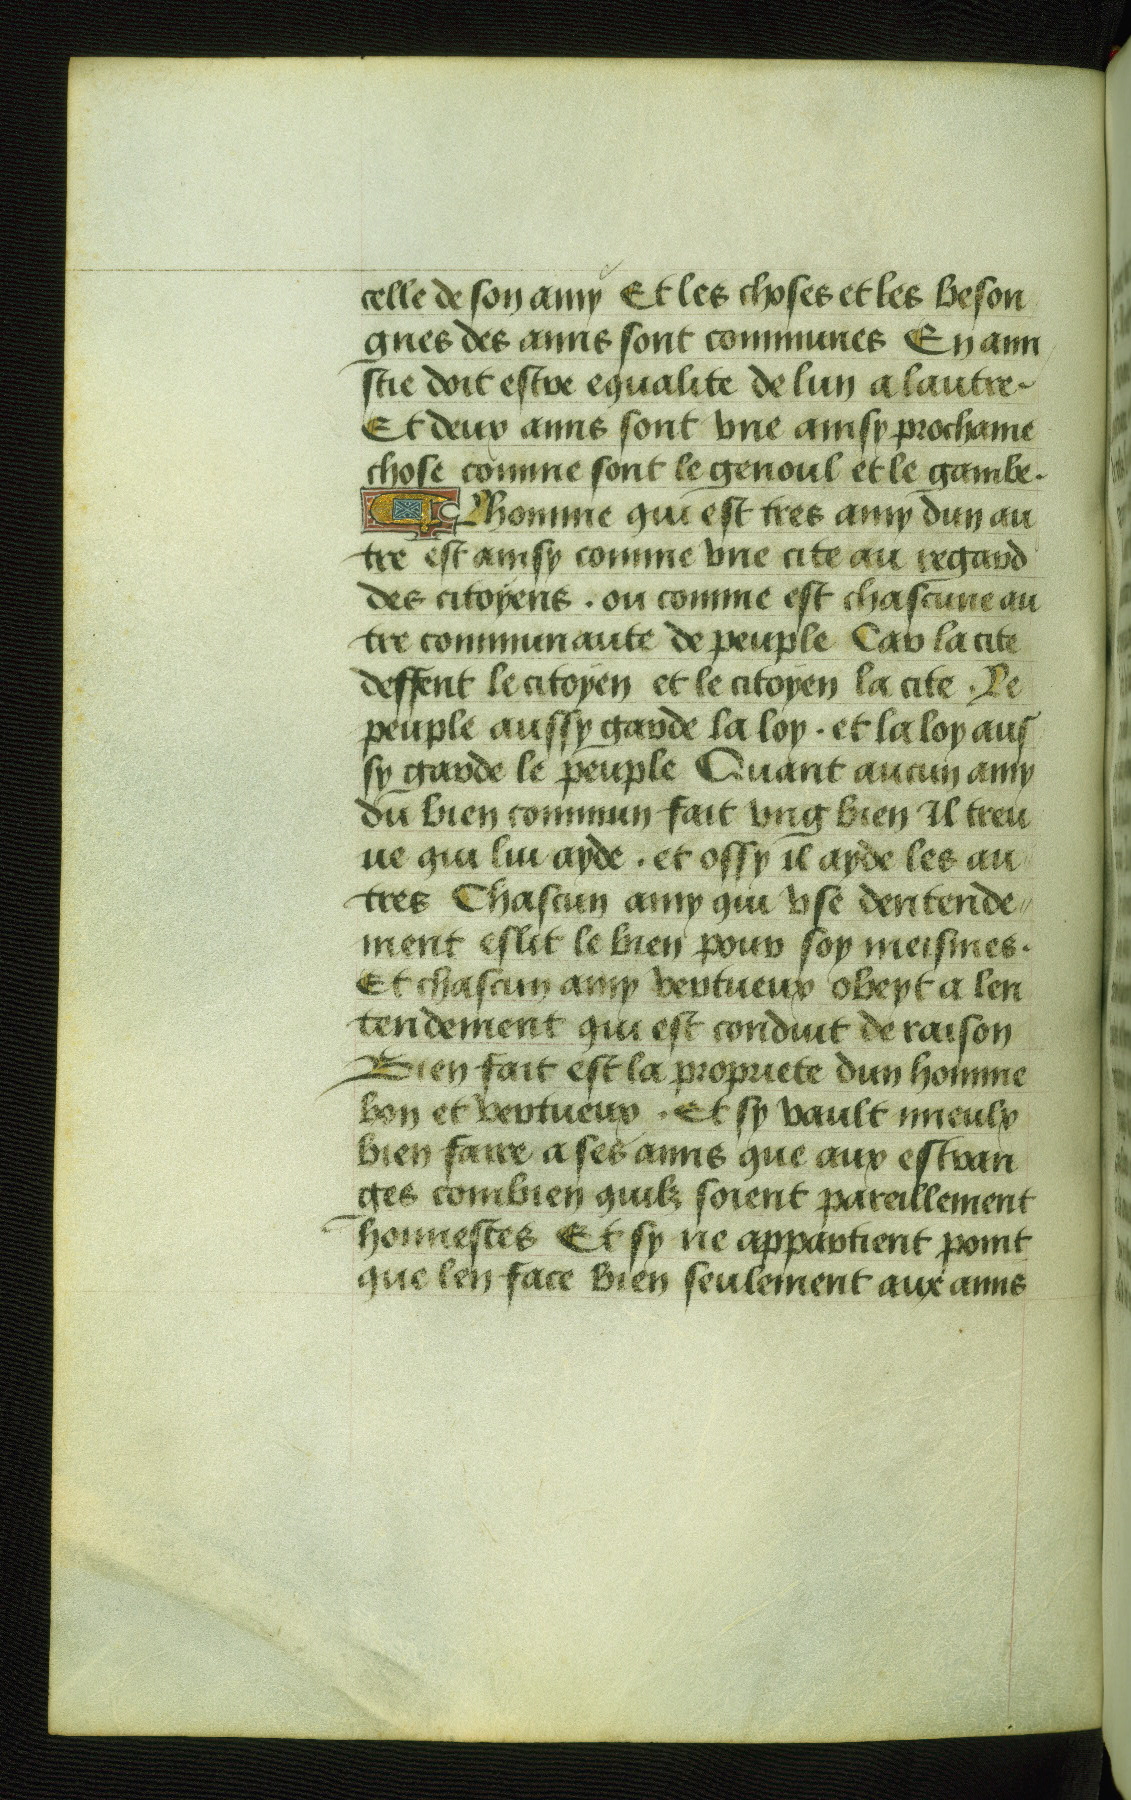 celle de son amy Et les choses et les beson
gnes des amis sont communes En ami
stie doit estre equalite de lun a lautre
Et deux amis sont vne ainsy prochaine
chose comme sont le genoul et le gambe.
Lhomme qui est tres amy dun au
tre est ainsy comme vne cite au regard
des citoyens . ou comme est chascune au
tre communaute de peuple Car la cite
deffent le citoyen et le citoyen la cite . Le
peuple aussy garde la loy . et la loy aus
sy garde le peuple Quant aucun amy
du bien commun fait vng bien Il treu
ue qui lui ayde . et ossy il ayde les au
tres Chascun amy qui vse dentende
ment eslit le bien pour soy meismes.
Et chascun amy vertueux obeyt a len
tendement qui est conduit de raison
Bien fait est la propriete dun homme
bon et vertueux . Et sy vault mieulx
bien faire a ses amis que aux estran
ges combien quilz soient pareillement
honnestes Et sy ne appartient point
que len face bien seulement aux amis